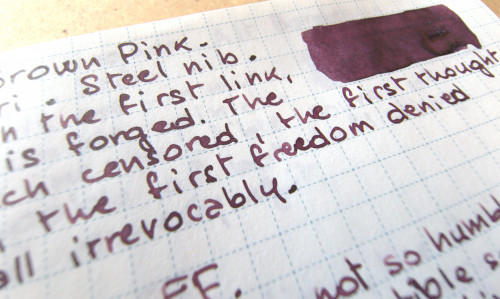 Brown Pink.
. Steel nib.
the first link,
is forged. The
censored, the first thought
the first freedom denied
all irrevocably.
FF. not so humb